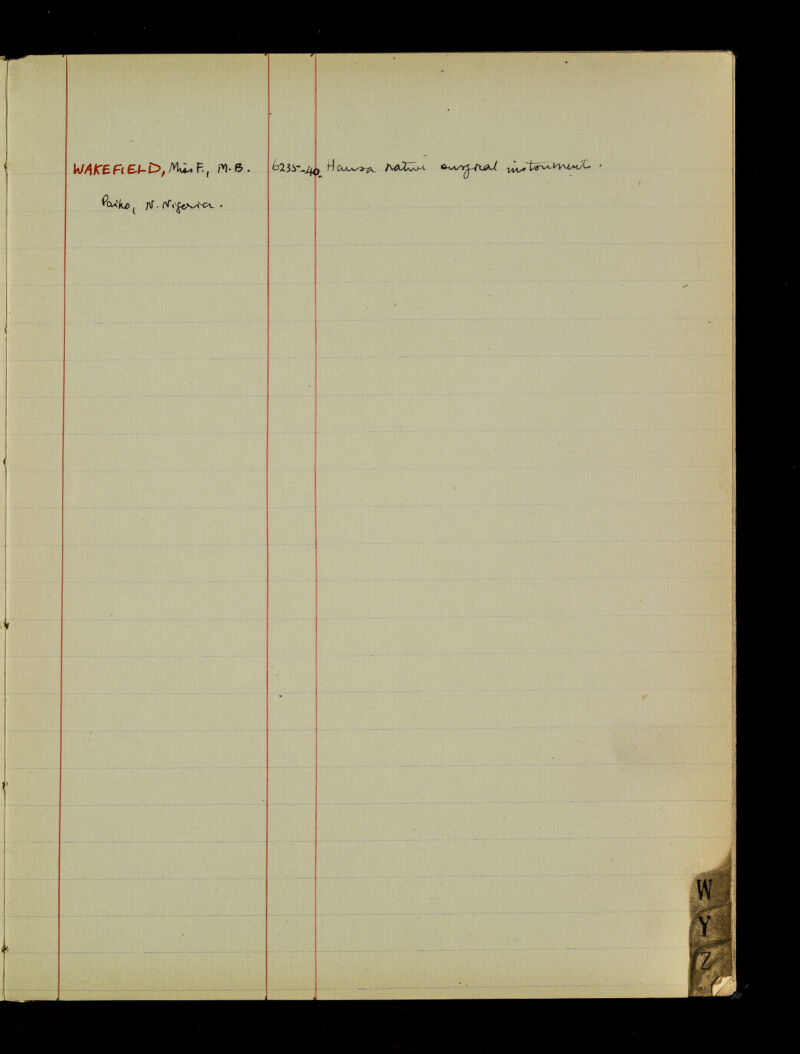 WAKEFIELD, Miss F., M.B. 6235-40. Hausa native surgical instruments.
Paiko, N. Nigeria.
W
Y
Z